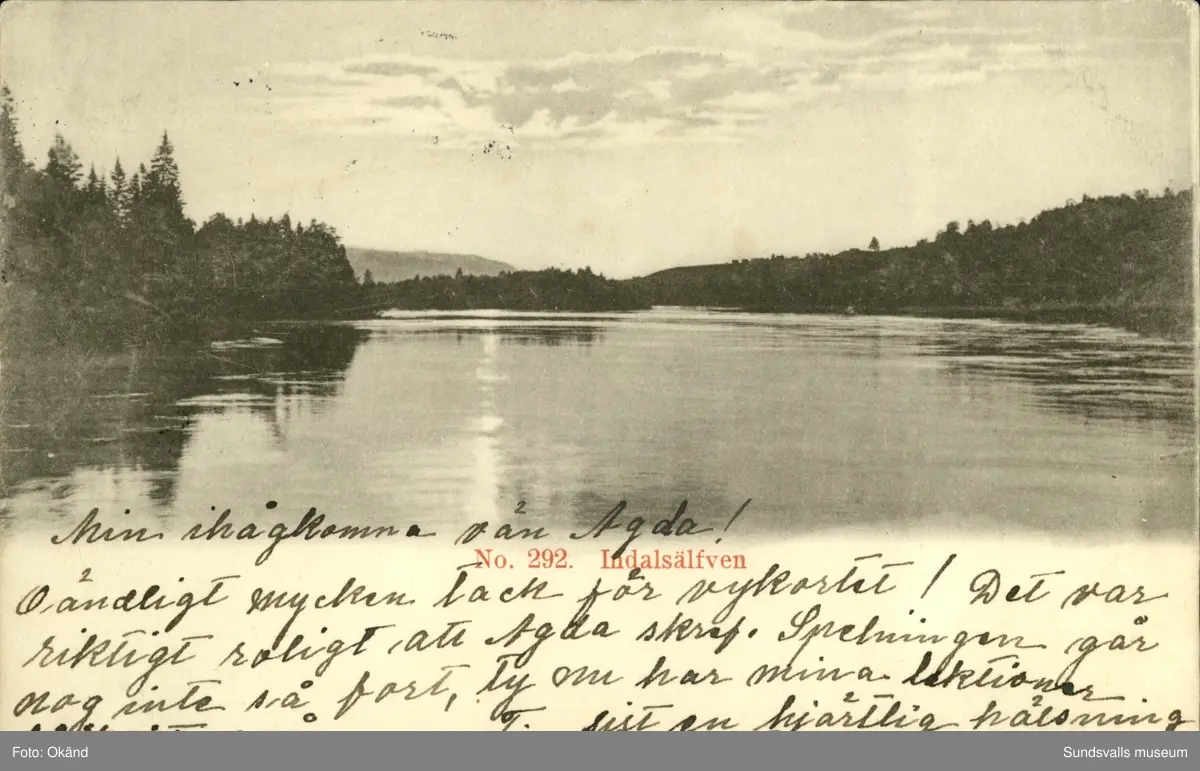 Min ihågkomna vän Agda!
No. 292. Indalsälfven
Oändligt mycken tack för vykortet! Det var
riktigt roligt att Agda skref. Spelningen går
nog inte så fort, ty nu har mina lektioner
sist en hjärtlig hälsning
Foto: Okänd
Sundsvalls museum